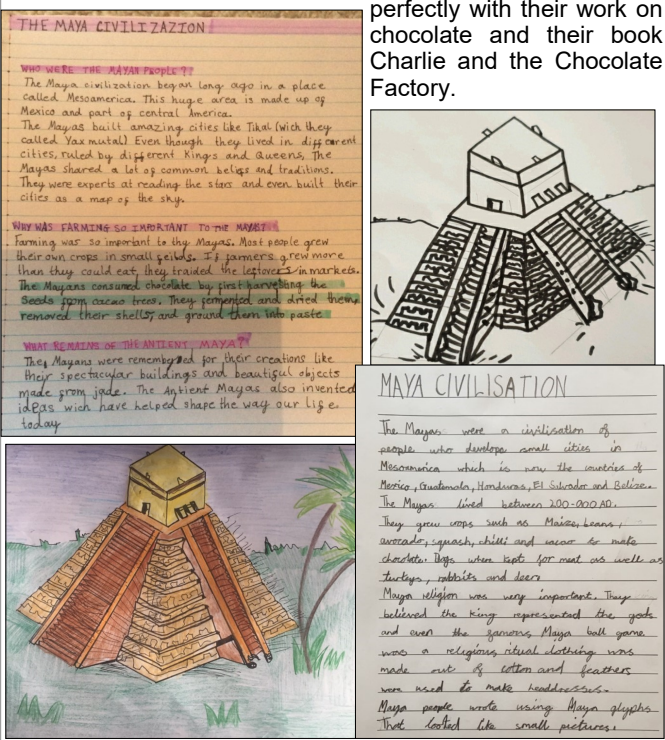 perfectly with their work on
chocolate and their book
Charlie and the Chocolate
Factory.
THE MAYA CIVILIZAZION
WHO WERE THE MAYAN PEOPLE??
The Maya civilization began long ago in a place
called Mesoamerica. This huge area is made up of
Mexico and part of central America.
The Mayas built amazing cities like Tikal (wich they
called Yax mutal) Even though they lived in different
cities, ruled by different Kings and Queens, The
Mayas shared a lot of common beliefs and traditions.
They were experts at reading the stars and even built their
cities as a map of the sky.
WHY WAS FARMING SO IMPORTANT TO THE MAYAS?
Farming was so important to thy Mayas. Most people grew
their own crops in small feilds. If farmers grew more
than they could eat, they traided the leftovers in markets.
The Mayans consumed chocolate by first harvesting the
seeds from cacao trees. They fermented and dried them,
removed their shells, and ground them into paste
WHAT REMAINS OF THE ANTIENT, MAYA?
The Mayans were remembered for their creations like
their spectacular buildings and beautiful objects
made from jade. The Antient Mayas also invented
ideas wich have helped shape the way our life
today
MAYA CIVILISATION
The Mayas were a civilisation of
people who develope small cities in
Mesoamerica which is now the countries of
Mexico, Guatemala, Honduras, El Salvador and Belize.
The Mayas lived between 200-900 AD.
They grew crops such as Maize, beans,
avocado, squash, chilli and cacao to make
chocolate. Dogs where kept for meat as well as
turkeys, rabbits and deer.
Maya religion was very important. They
believed the King represented the gods
and even the famous Maya ball game
was a religious ritual clothing was
made out of cotton and feathers
were used to make headdresses.
Maya people wrote using Maya glyphs
That looked like small pictures.